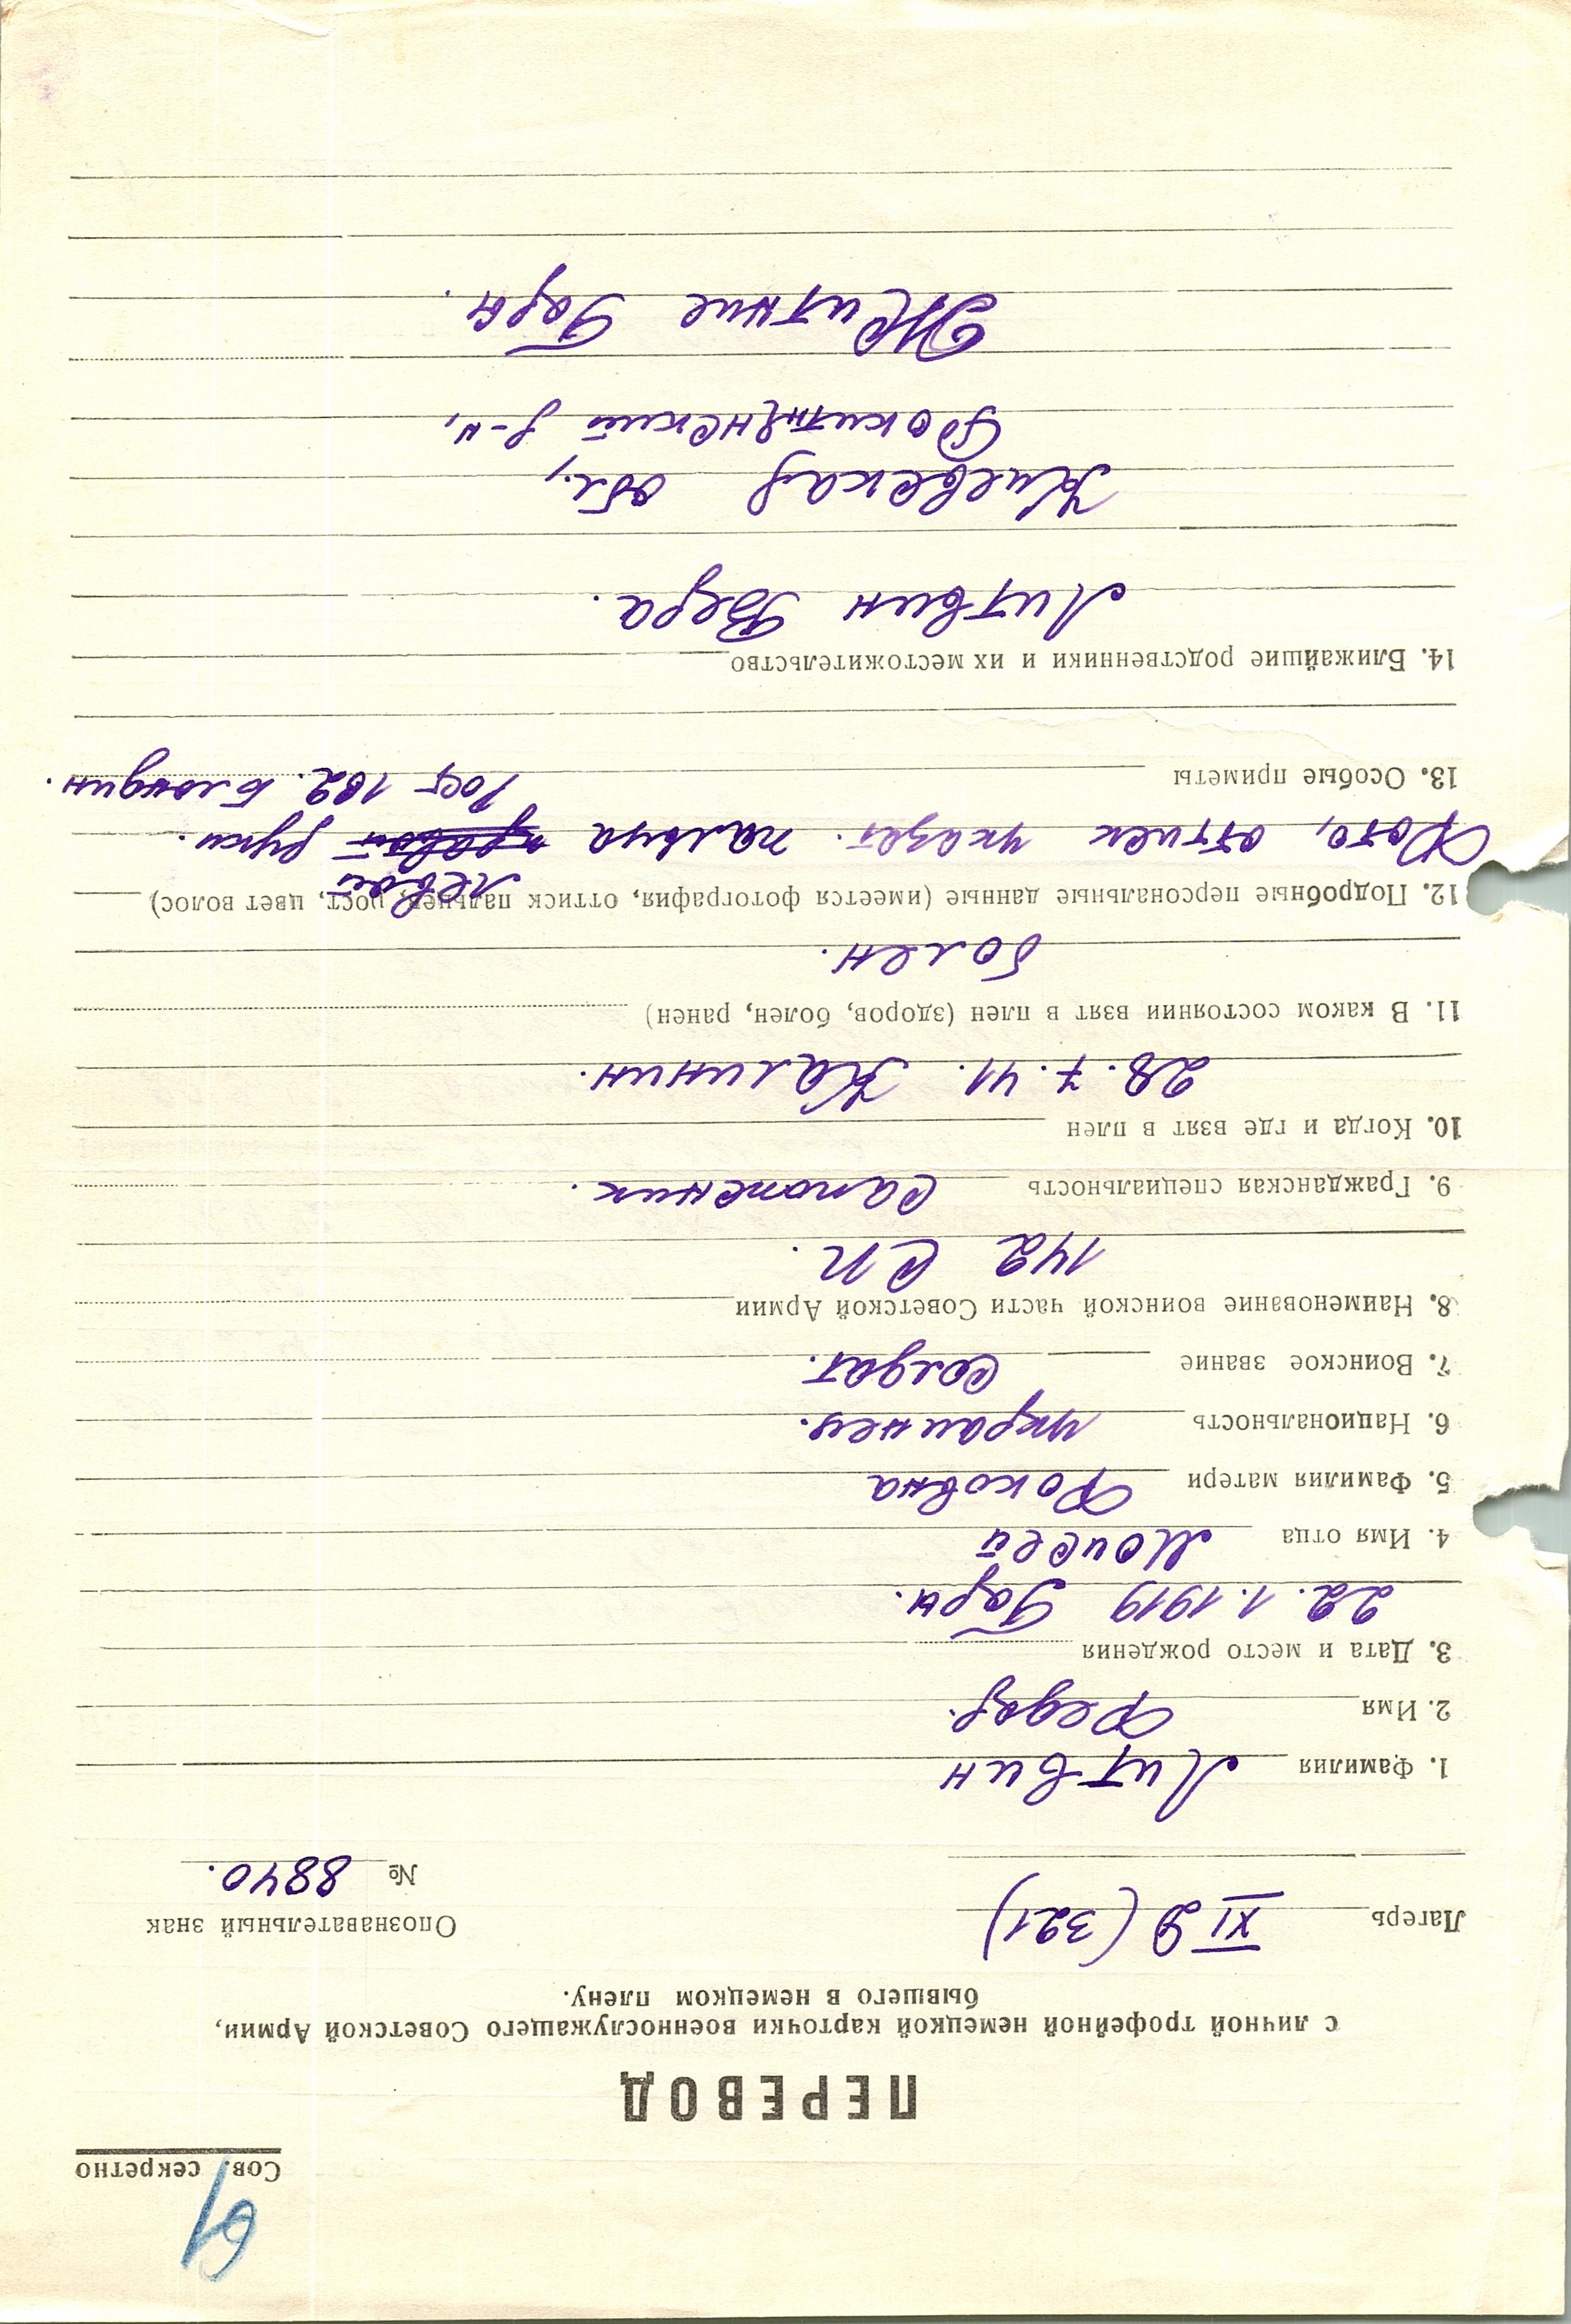 61
Сов. секретно
ПЕРЕВОД
с личной трофейной немецкой карточки военнослужащего Советской Армии,
бывшего в немецком плену.
Лагерь XI D (321)
Опознавательный знак
№ 8840.
1. Фамилия Литвин
2. Имя Федор.
3. Дата и место рождения
22.1.1919 Гары.
4. Имя отца Моисей
5. Фамилия матери Фоковна
6. Национальность украинец.
7. Воинское звание солдат.
8. Наименование воинской части Советской Армии
142 СП.
9. Гражданская специальность сапожник.
10. Когда и где взят в плен
28.7.41. Калинин.
11. В каком состоянии взят в плен (здоров, болен, ранен)
болен.
12. Подробные персональные данные (имеется фотография, оттиск пальцев, рост, цвет волос)
левой
Фото, оттиск указат. пальца правой руки.
Рост 182. Блондин.
13. Особые приметы
14. Ближайшие родственники и их местожительство
Литвин Вера.
Киевская обл.,
Рокитнянский р-н,
Житние Гары.